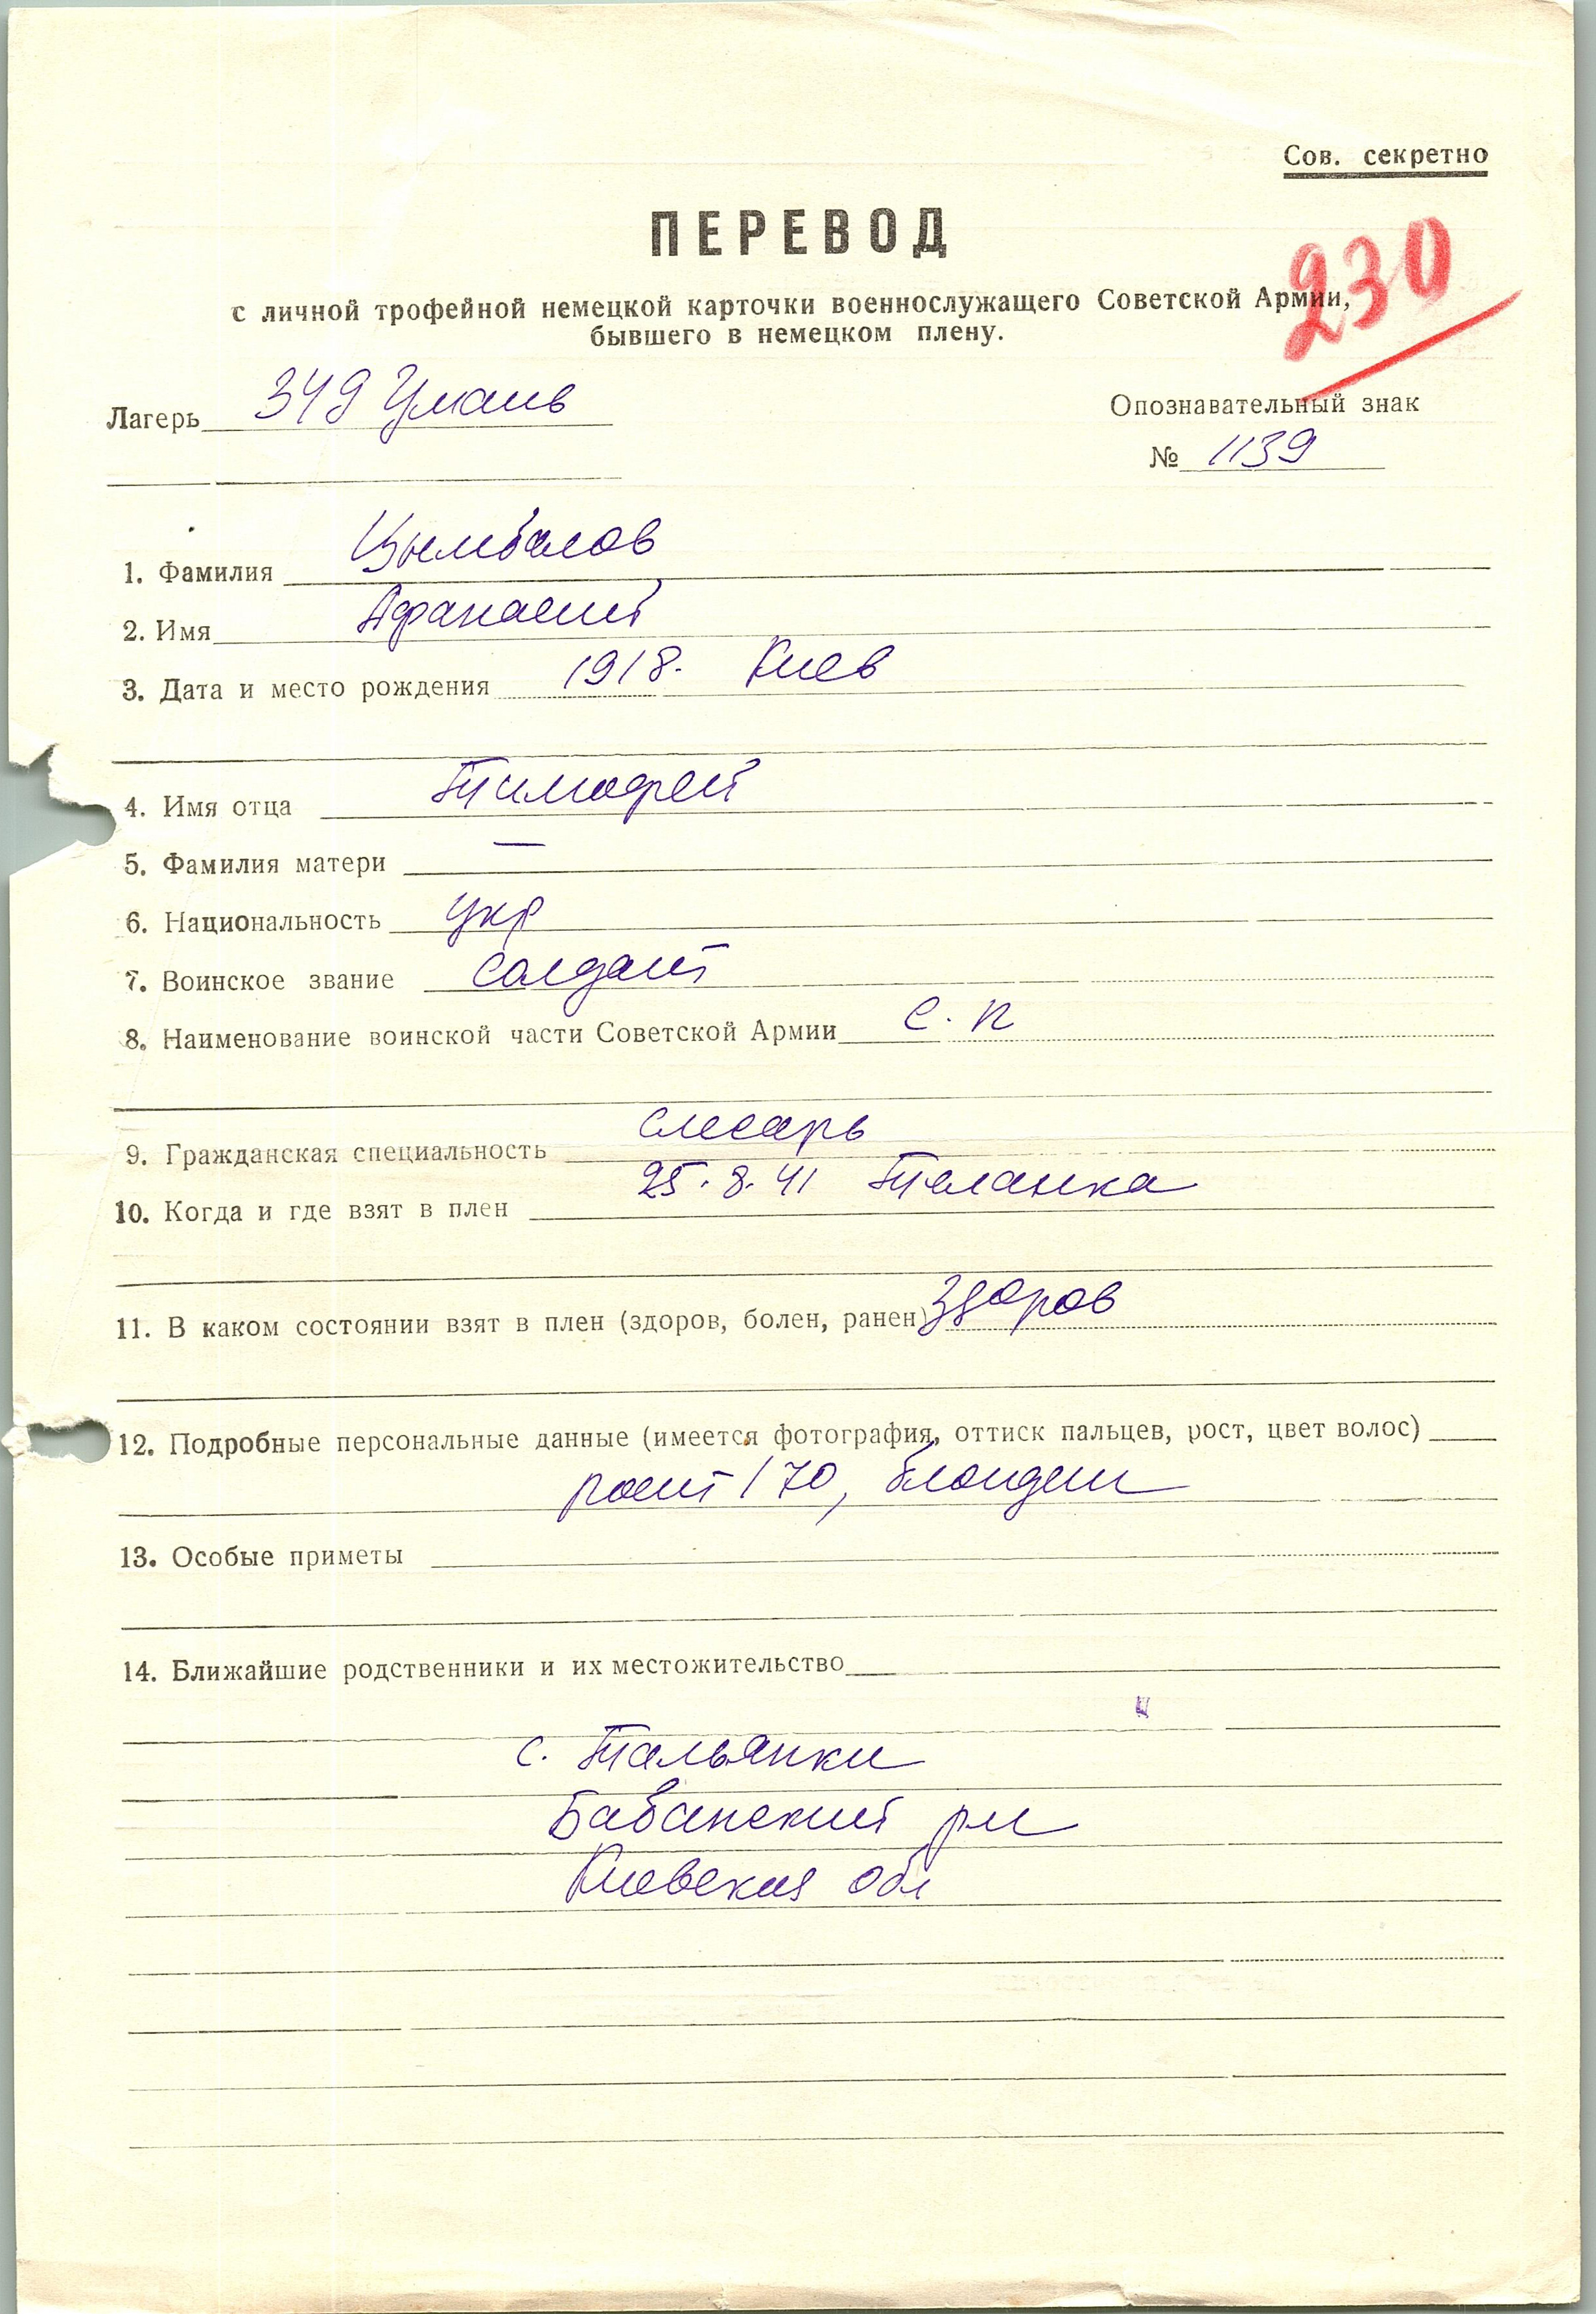 Сов. секретно
ПЕРЕВОД
230
с личной трофейной немецкой карточки военнослужащего Советской Армии,
бывшего в немецком плену.
Лагерь 349 Умань
Опознавательный знак
№ 1139
1. Фамилия Цымбалов
2. Имя Афанасий
3. Дата и место рождения 1918. Киев
4. Имя отца Тимофей
5. Фамилия матери —
6. Национальность укр
7. Воинское звание солдат
8. Наименование воинской части Советской Армии с. п
9. Гражданская специальность слесарь
10. Когда и где взят в плен 25.8.41 Таланка
11. В каком состоянии взят в плен (здоров, болен, ранен) здоров
12. Подробные персональные данные (имеется фотография, оттиск пальцев, рост, цвет волос)
рост 170, блондин
13. Особые приметы
14. Ближайшие родственники и их местожительство
с. Тальянки
Бабанский рн
Киевская обл